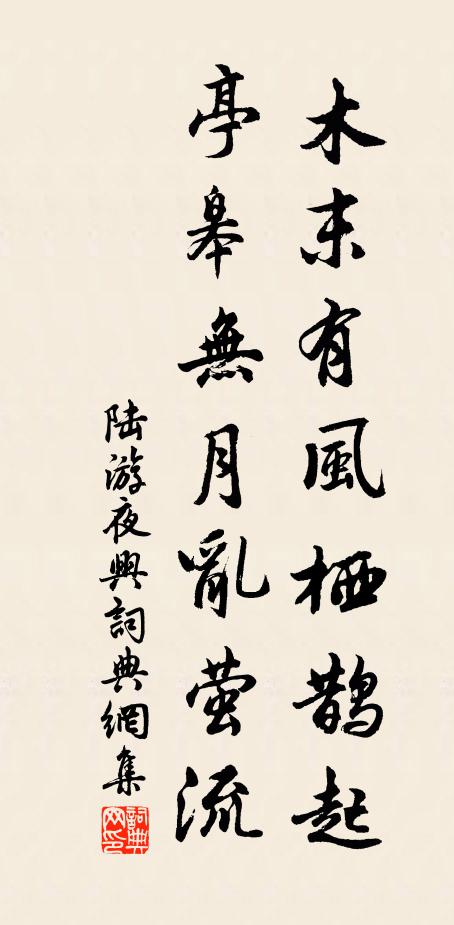 木末有風栖鵲起
亭皋無月亂萤流
陆游夜興詞典網集
詞典
网印